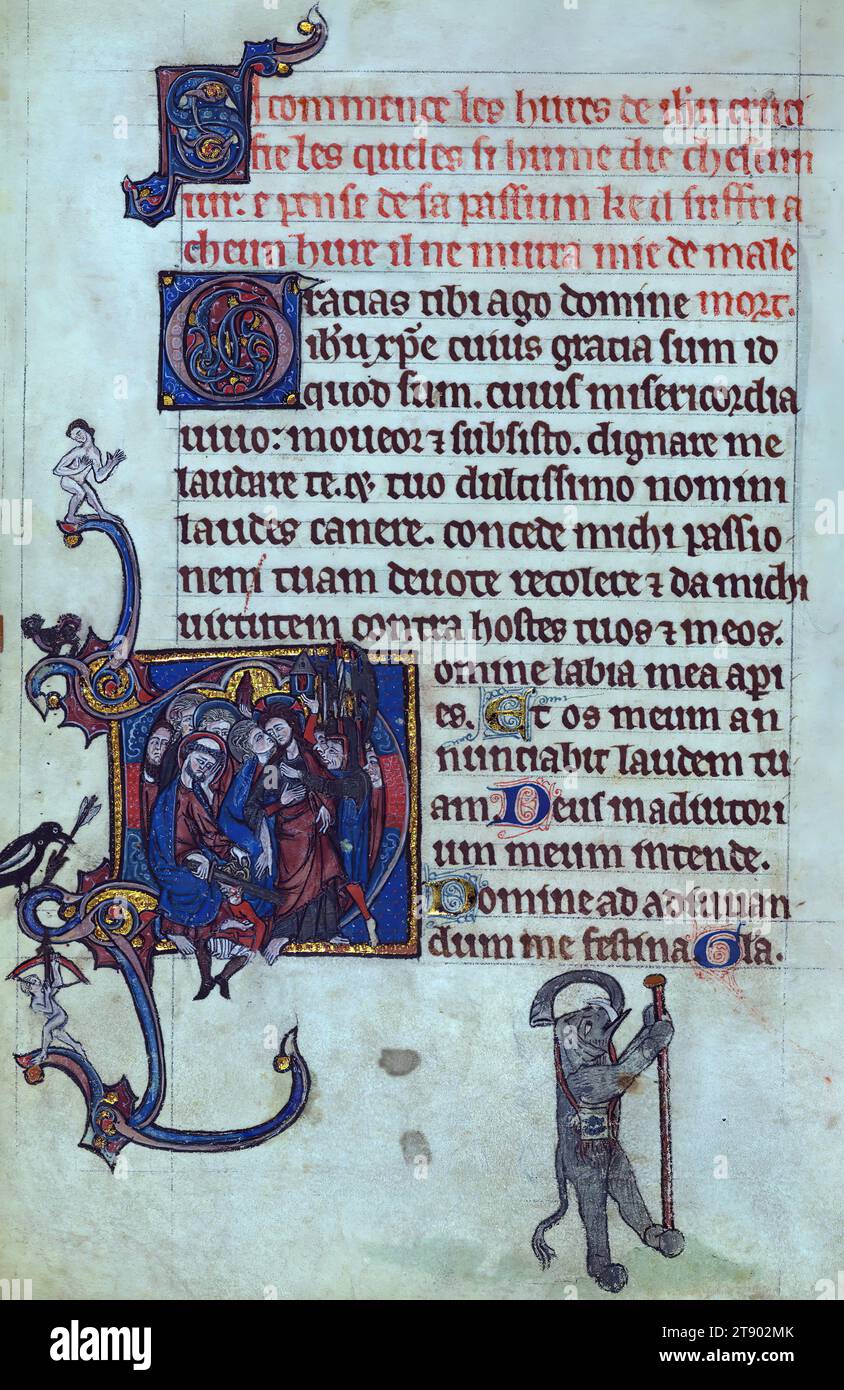 SI commence les hures de ih'u cruci
fie les queles si hume die chescun
iur. e pense de sa passiun ke il suffri a
cheun hure il ne murra mie de male
mort.
Gracias tibi ago domine
ih'u xp̄e cuius gracia sum id
quod sum. cuius misericordia
uiuo: moueor ⁊ subsisto. dignare me
laudare te. tuo dulcissimo nomini
laudes canere. concede michi passio
nem tuam deuote recolere ⁊ da michi
uirtutem contra hostes tuos ⁊ meos.
Domine labia mea aperi
es. Et os meum an
nunciabit laudem tu
am Deus in adiutori
um meum intende.
Domine ad adiuuan
dum me festina Gla.
alamy
Image ID: 2T902MK
www.alamy.com